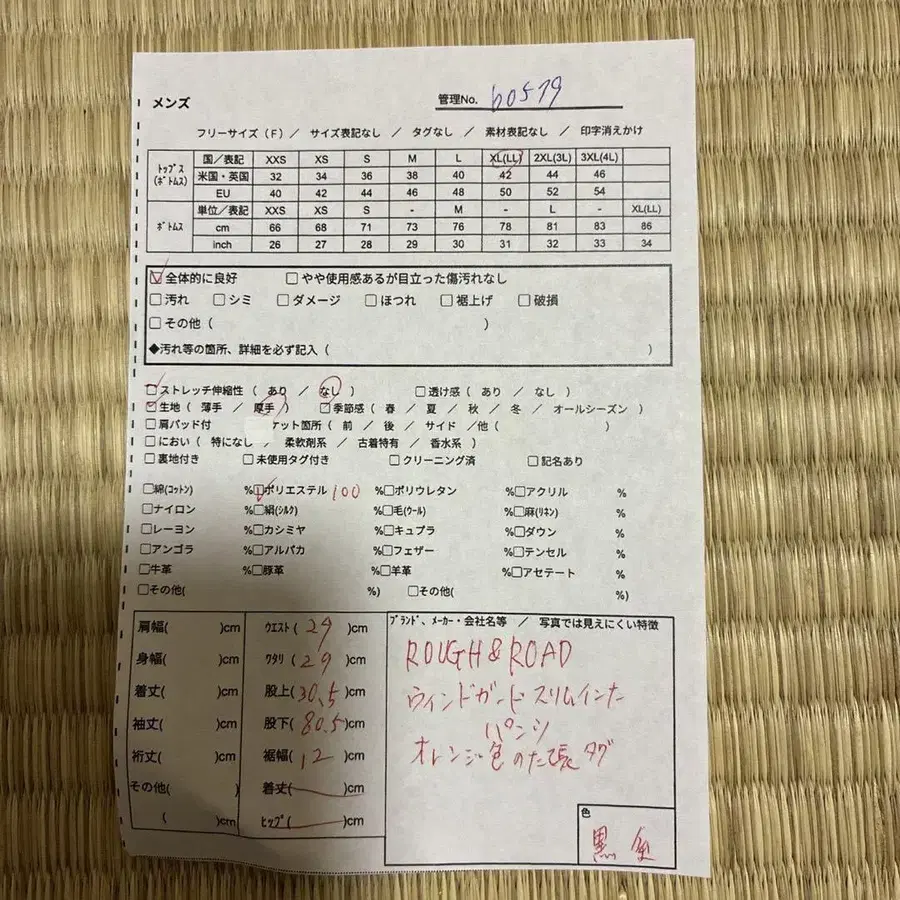 メンズ
管理No. b0579
フリーサイズ（F）／ サイズ表記なし ／ タグなし ／ 素材表記なし ／ 印字消えかけ
トップス（ボトムス） 国／表記 XXS XS S M L XL(LL) 2XL(3L) 3XL(4L)
米国・英国 32 34 36 38 40 42 44 46
EU 40 42 44 46 48 50 52 54
ボトムス 単位／表記 XXS XS S - M - L - XL(LL)
cm 66 68 71 73 76 78 81 83 86
inch 26 27 28 29 30 31 32 33 34
☑全体的に良好 □やや使用感あるが目立った傷汚れなし
□汚れ □シミ □ダメージ □ほつれ □裾上げ □破損
□その他（ ）
◆汚れ等の箇所、詳細を必ず記入（ ）
☑ストレッチ伸縮性（ あり ／ なし ） □透け感（ あり ／ なし ）
☑生地（ 薄手 ／ 厚手 ） ☑季節感（ 春 ／ 夏 ／ 秋 ／ 冬 ／ オールシーズン ）
□肩パッド付 ケット箇所（ 前 ／ 後 ／ サイド ／他（ ）
□におい（ 特になし ／ 柔軟剤系 ／ 古着特有 ／ 香水系 ）
□裏地付き □未使用タグ付き □クリーニング済 □記名あり
□綿(コットン) %☑ポリエステル 100 %□ポリウレタン %□アクリル %
□ナイロン %□絹(シルク) %□毛(ウール) %□麻(リネン) %
□レーヨン %□カシミヤ %□キュプラ %□ダウン %
□アンゴラ %□アルパカ %□フェザー %□テンセル %
□牛革 %□豚革 %□羊革 %□アセテート %
□その他( %) □その他( %)
肩幅( )cm ウエスト( 29 )cm
身幅( )cm ワタリ( 29 )cm
着丈( )cm 股上( 30.5 )cm
袖丈( )cm 股下( 80.5 )cm
裄丈( )cm 裾幅( 12 )cm
その他( ) 着丈( )cm
( )cm ヒップ( )cm
ブランド、メーカー・会社名等 ／ 写真では見えにくい特徴
ROUGH & ROAD
ウィンドガードスリムインナー
パンツ
オレンジ色のタグ
色
黒色